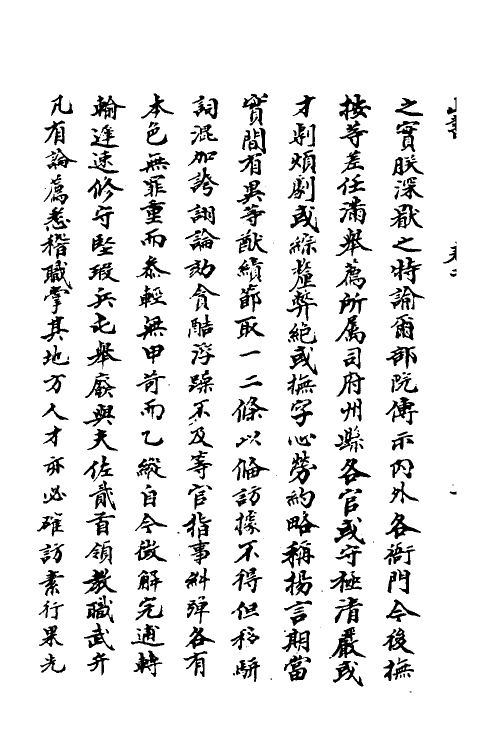 之實朕深厭之特諭爾部院傳示內外各衙門今後撫
按等差任滿舉薦所属司府州縣各官或守極清嚴或
才剸煩劇或綜釐弊絶或撫字心勞約略稱揚言期當
實間有異等猷績節取一二條以俻訪據不得但移駢
詞混加誇詡論劾貪酷浮躁不及等官指事糾彈各有
本色無罪重而叅輕無甲苛而乙縱自今徵解完逋轉
輸遲速修守堅瑕兵屯舉廢與夫佐貳首領教職武弁
凡有論薦悉稽職掌其地方人才亦必確訪素行果光